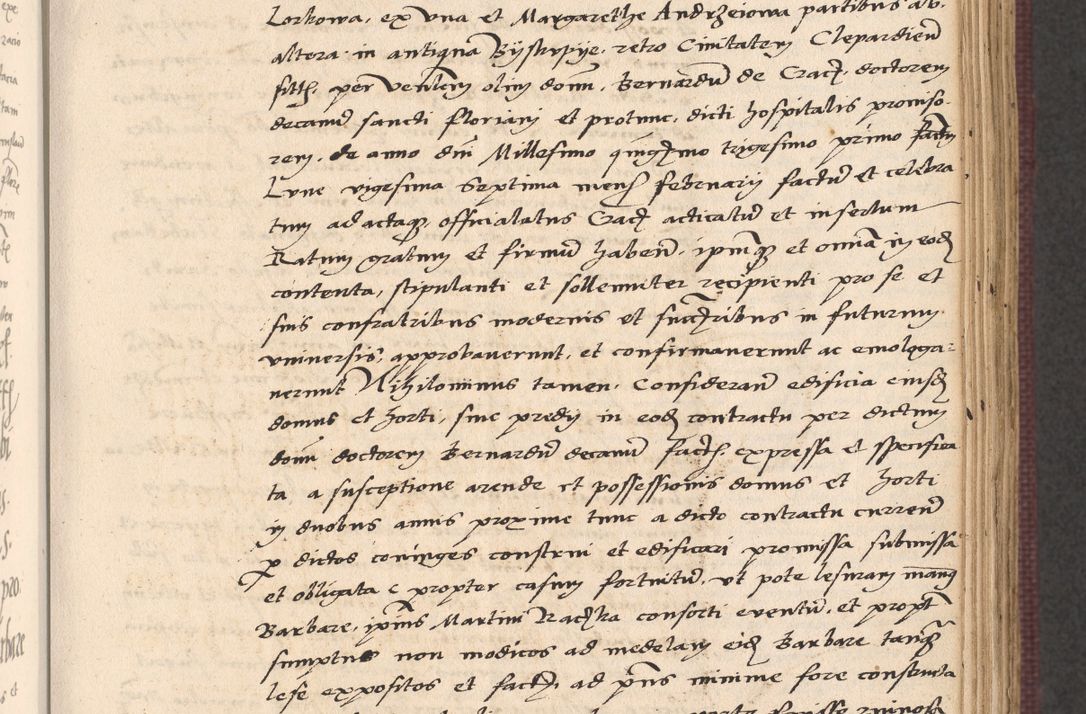 Lorkowa, ex vna et Margarethe Andrzeiowa partibus ab
altera in antiqua Byskypye, retro Ciuitatem Clepardien̄
sitħ, per Ven̄lem olim domn̄. Bernardū de Crac̄, doctorem
decanū sancti Floriani et protunc, dicti hospitalis prouiso-
rem, de anno dn̄i Millesimo quingmo trigesimo primo
Lune vigesima Septima mens̄ februarij factū et celebra
tum ad actaqȝ officialatus Crac̄ acticatū et insertum
Ratum gratum et firmū haben̄, ipm̄qȝ et omia in eod̄
contenta, stipulanti et sollemniter recipienti pro se et
suis confratribus modernis et succ̄ribus in futurum
vniuersis, approbauerunt, et confirmauerunt ac emologa=
uerunt Nihilominus tamen, Consideran̄ edificia eiusd̄
domus et horti, siue predij in eod̄ contractu per dictum
domn̄ doctorem Bernardū decanū fact̄ expressa et specifica
ta, a susceptione arende et possessionis domus et horti
in duobus annis proxime tunc a dicto contractu curren̄
p dictos coniuges construi et edificari promissa submissa
et obligata propter casum fortuitū, vt pote lesuram manus
Barbare, ipius Martini Raczka consorti euentū, et propt̄
sumptus non modicos ad medelam eid̄ Barbare tanqȝ
lese expositos et fact̄, ad pn̄s minime fore constructa